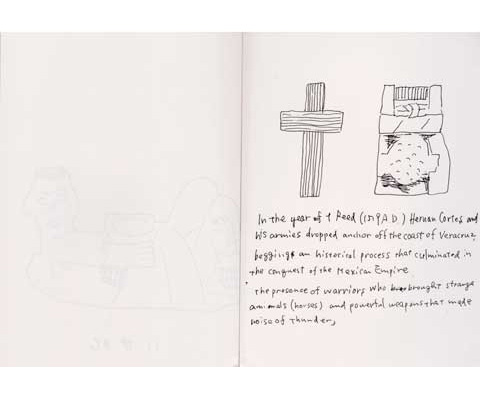 In the year of 1 Reed (1519 A.D.) Hernan Cortes and
his armies dropped anchor off the coast of Veracruz,
begging an historical process that culminated in
the conquest of the Mexican Empire.
The presence of warriors who brought strange
animals (horses) and powerful weapons that made
noise of thunder,